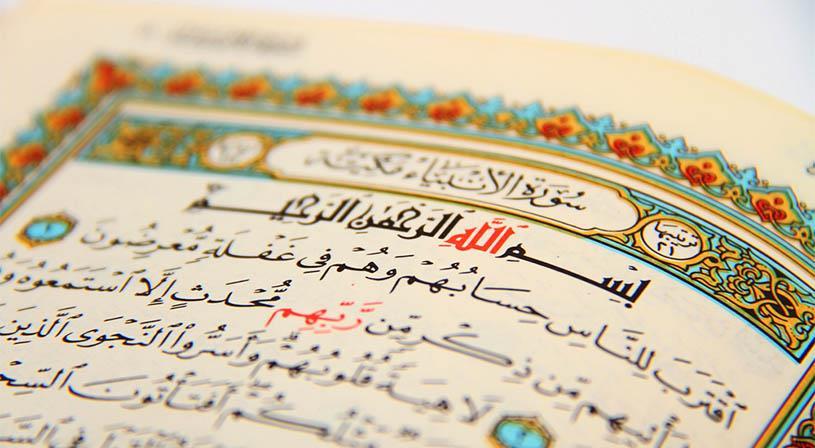 سُورَةُ الْأَنْبِيَاءِ مَكِّيَّة
تَرْتِيبُهَا ٢١
بِسْمِ اللَّهِ الرَّحْمَٰنِ الرَّحِيمِ
ٱقْتَرَبَ لِلنَّاسِ حِسَابُهُمْ وَهُمْ فِي غَفْلَةٍ مُّعْرِضُونَ ١
يَأْتِيهِم مِّن ذِكْرٍ مِّن رَّبِّهِم مُّحْدَثٍ إِلَّا ٱسْتَمَعُوهُ
لَاهِيَةً قُلُوبُهُمْ وَأَسَرُّوا۟ ٱلنَّجْوَى ٱلَّذِينَ
أَفَتَأْتُونَ ٱلسِّحْ